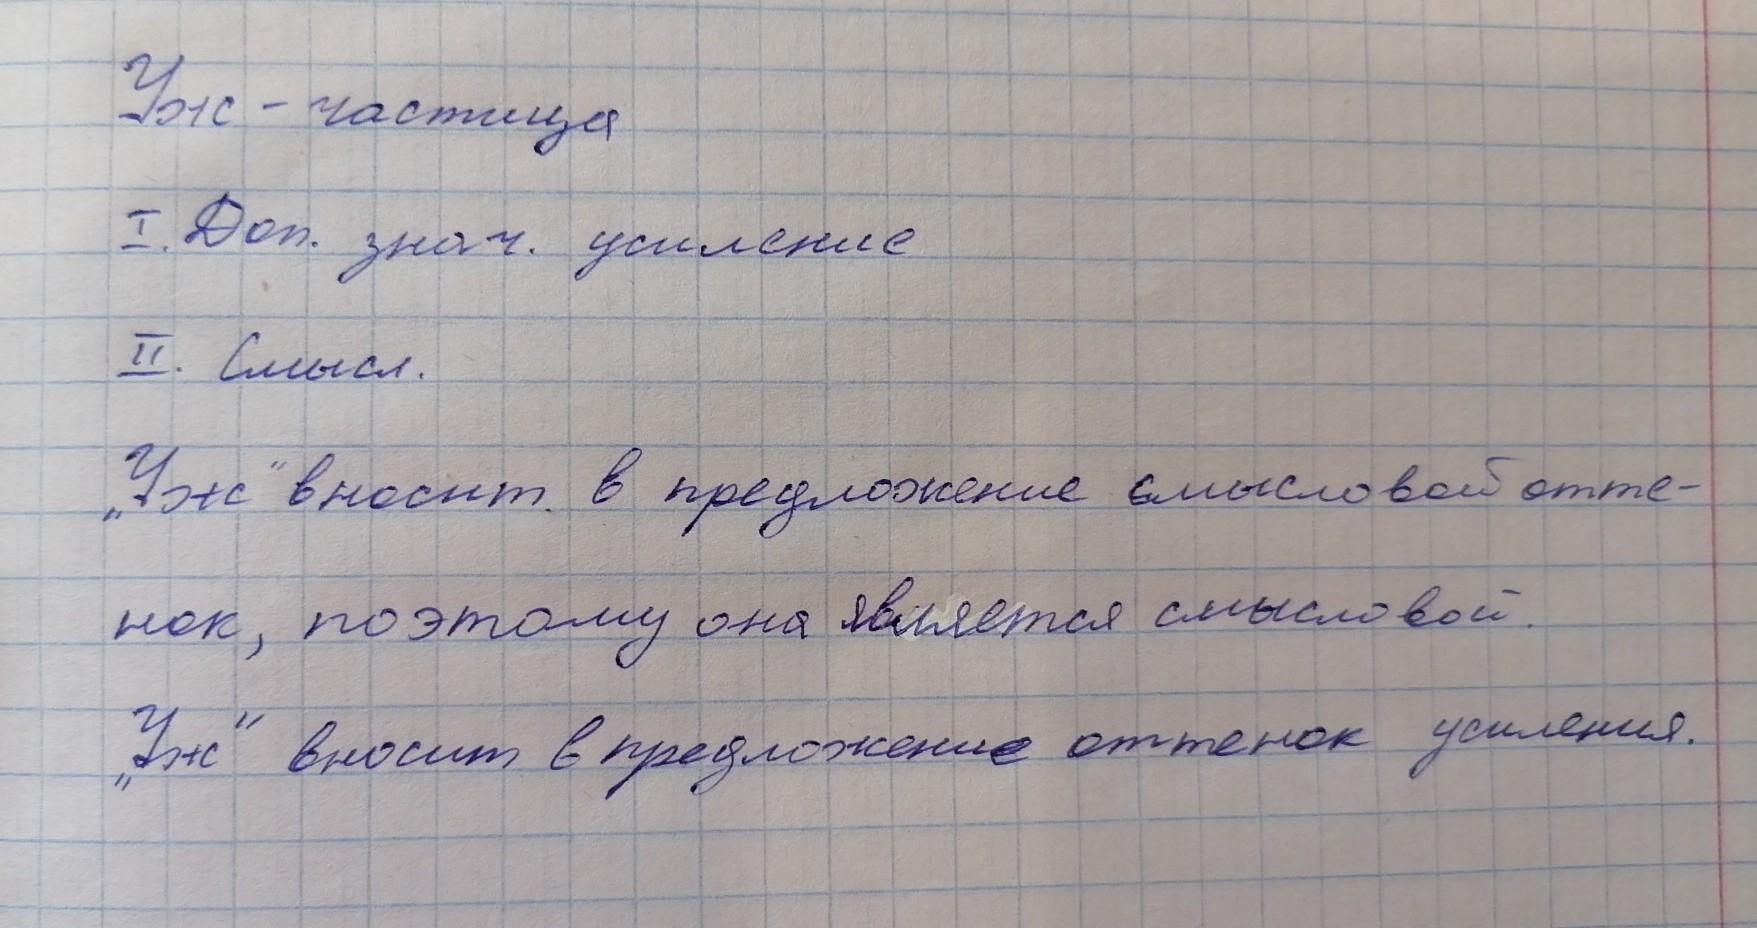 Уж - частица
I. Доп. знач. усиление
II. Смысл.
„Уж" вносит в предложение смысловой отте-
нок, поэтому она является смысловой.
„Уж" вносит в предложение оттенок усиления.